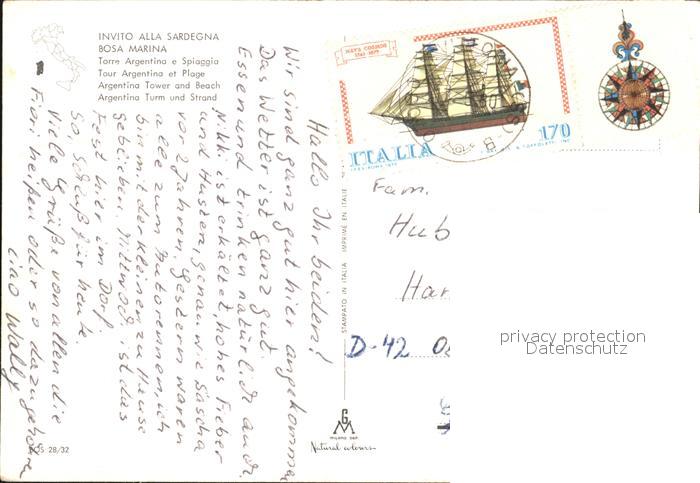 INVITO ALLA SARDEGNA
BOSA MARINA
Torre Argentina e Spiaggia
Tour Argentina et Plage
Argentina Tower and Beach
Argentina Turm und Strand
Hallo Ihr beiden!
Wir sind ganz gut hier angekommen
Das Wetter ist ganz gut.
Essen und trinken natürlich auch.
Nikki ist erkältet, hohes Fieber
und Husten, genau wie Sascha
vor 2 Jahren. Gestern waren
alle zum Autorennen, ich
bin mit der kleinen zu Hause
geblieben. Mittwoch ist das
Fest hier im Dorf
So, Schluß für heute.
Viele Grüße von allen die
Fiori heißen oder so dazu gehören
Ciao Wally
BOS 28/32
STAMPATO IN ITALIA IMPRIMÉ EN ITALIE
GM
milano
Natural colours
NAVE COZZESE
ITALIA
170
Fam.
Hub
Har
D-42
privacy protection
Datenschutz